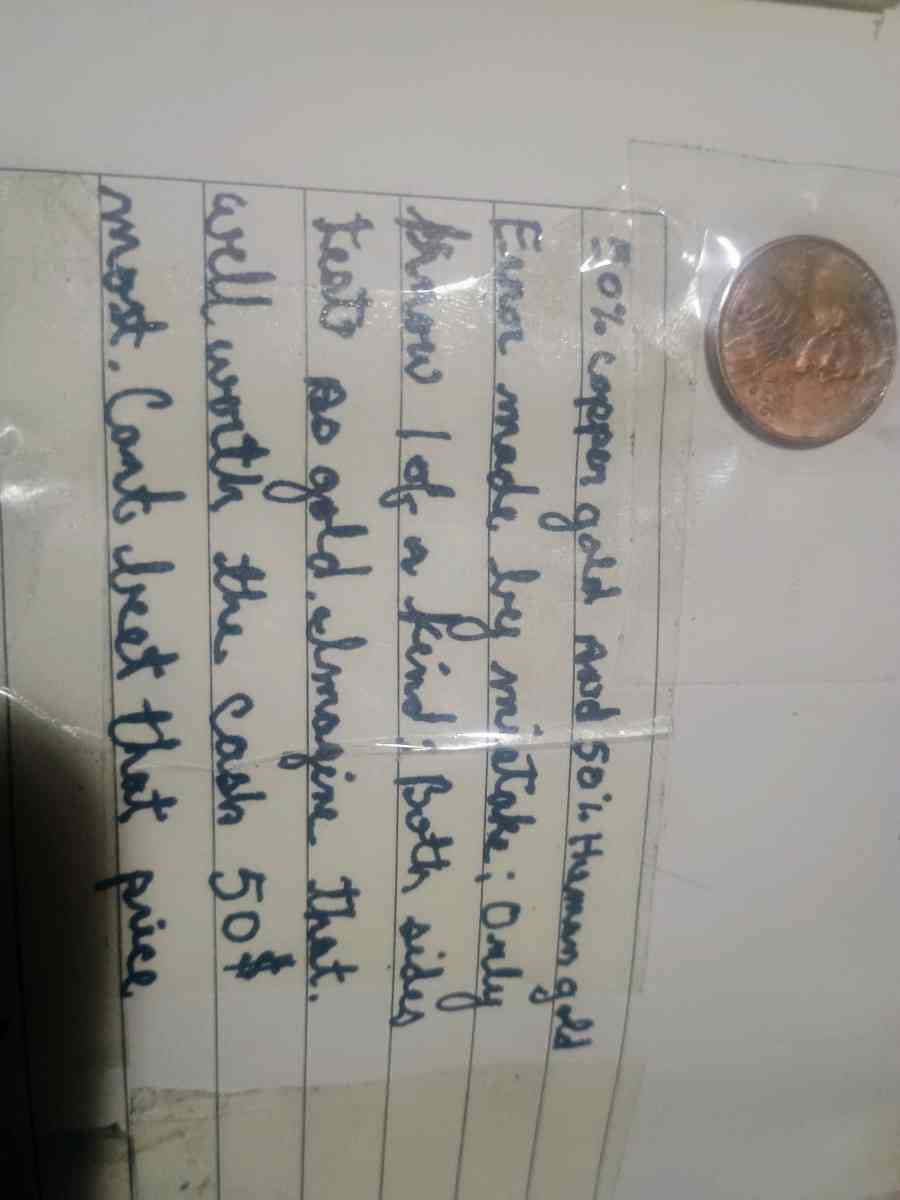 50% copper gold and 50% Human gold
Error made by mistake; Only
know 1 of a kind. Both sides
test as gold. Imagine that.
well worth the cash 50$
most. Cant beet that price.